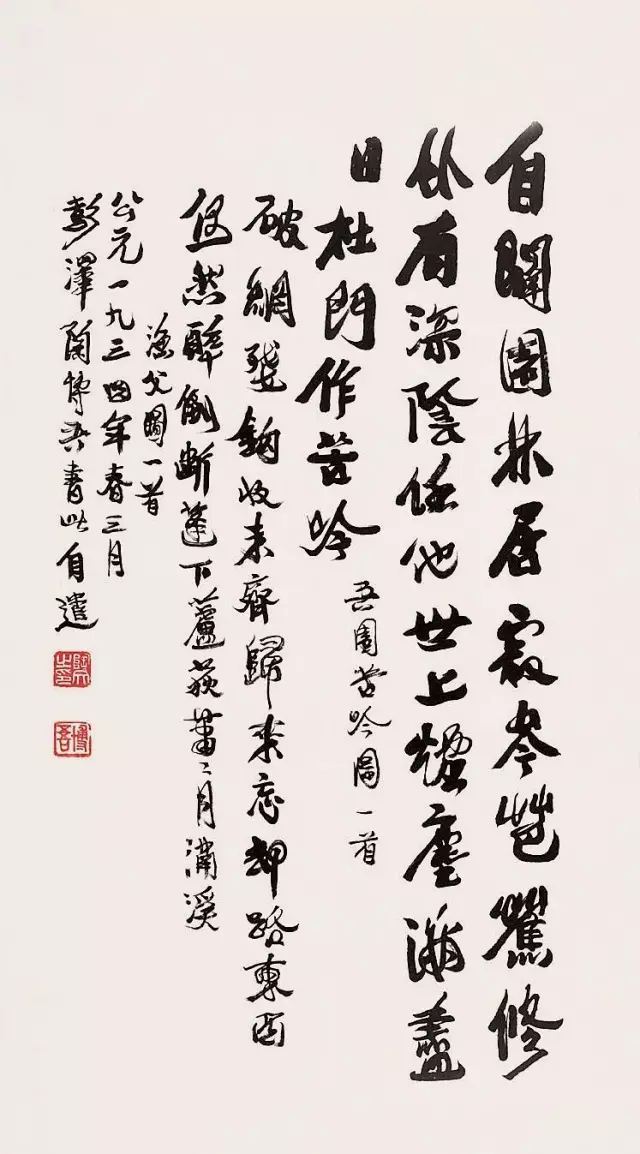 自闢園林居岑修
竹有深陰任他世上煙塵滿盡
日杜門作苦吟
吾園苦吟圖一首
破網殘鉤收未齊歸來忘卻路東西
然醉倒斷篷下蘆荻蕭〻月滿溪
漁父圖一首
公元一九三四年春三月
彭澤陶博吾書此自遣
博吾